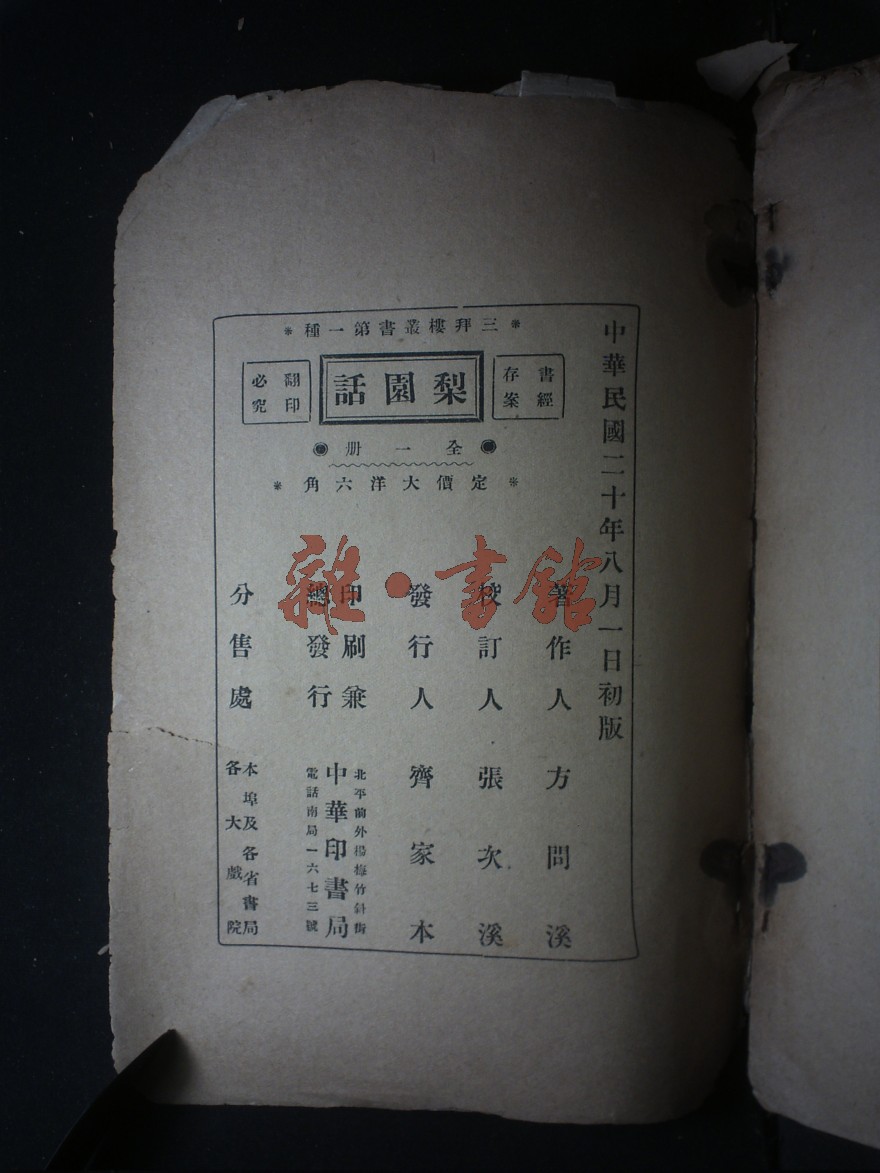 中華民國二十年八月一日初版
三拜樓叢書第一種
書經存案
梨園話
翻印必究
全一册
定價大洋六角
著作人 方問溪
校訂人 張次溪
發行人 齊家本
印刷兼總發行
北平前外楊梅竹斜街
中華印書局
電話南局一六七三號
分售處
本埠及各省書局
各大戲院
雜·書館